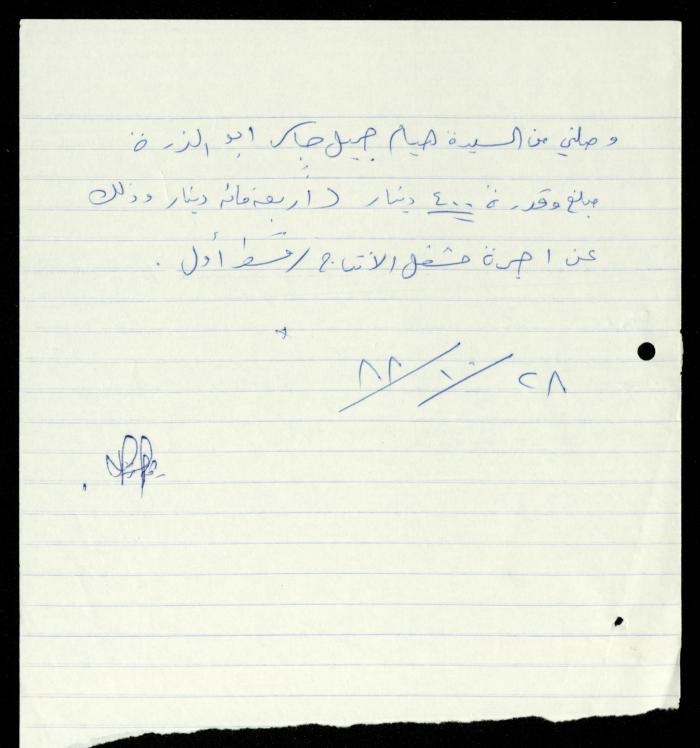 وصلني من السيدة هيام جميل جابر ابو الذرة
مبلغ وقدرة ٤٠٠ دينار (أربعة مائه دينار وذلك
عن اجرة مشغل الانتاج / قسط أول .
٢٨ / ١٠ / ٨٨